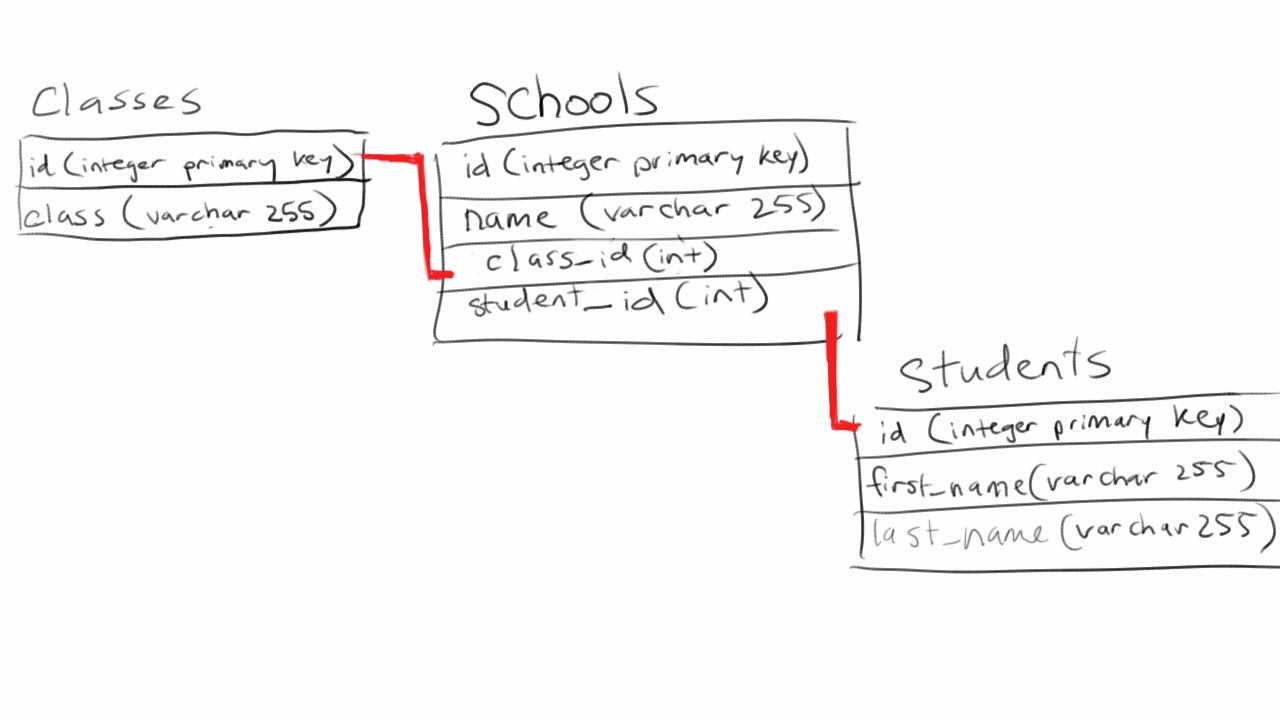 Classes
id (integer primary key)
class (varchar 255)
Schools
id (integer primary key)
name (varchar 255)
class_id (int)
student_id (int)
Students
id (integer primary key)
first_name (varchar 255)
last_name (varchar 255)